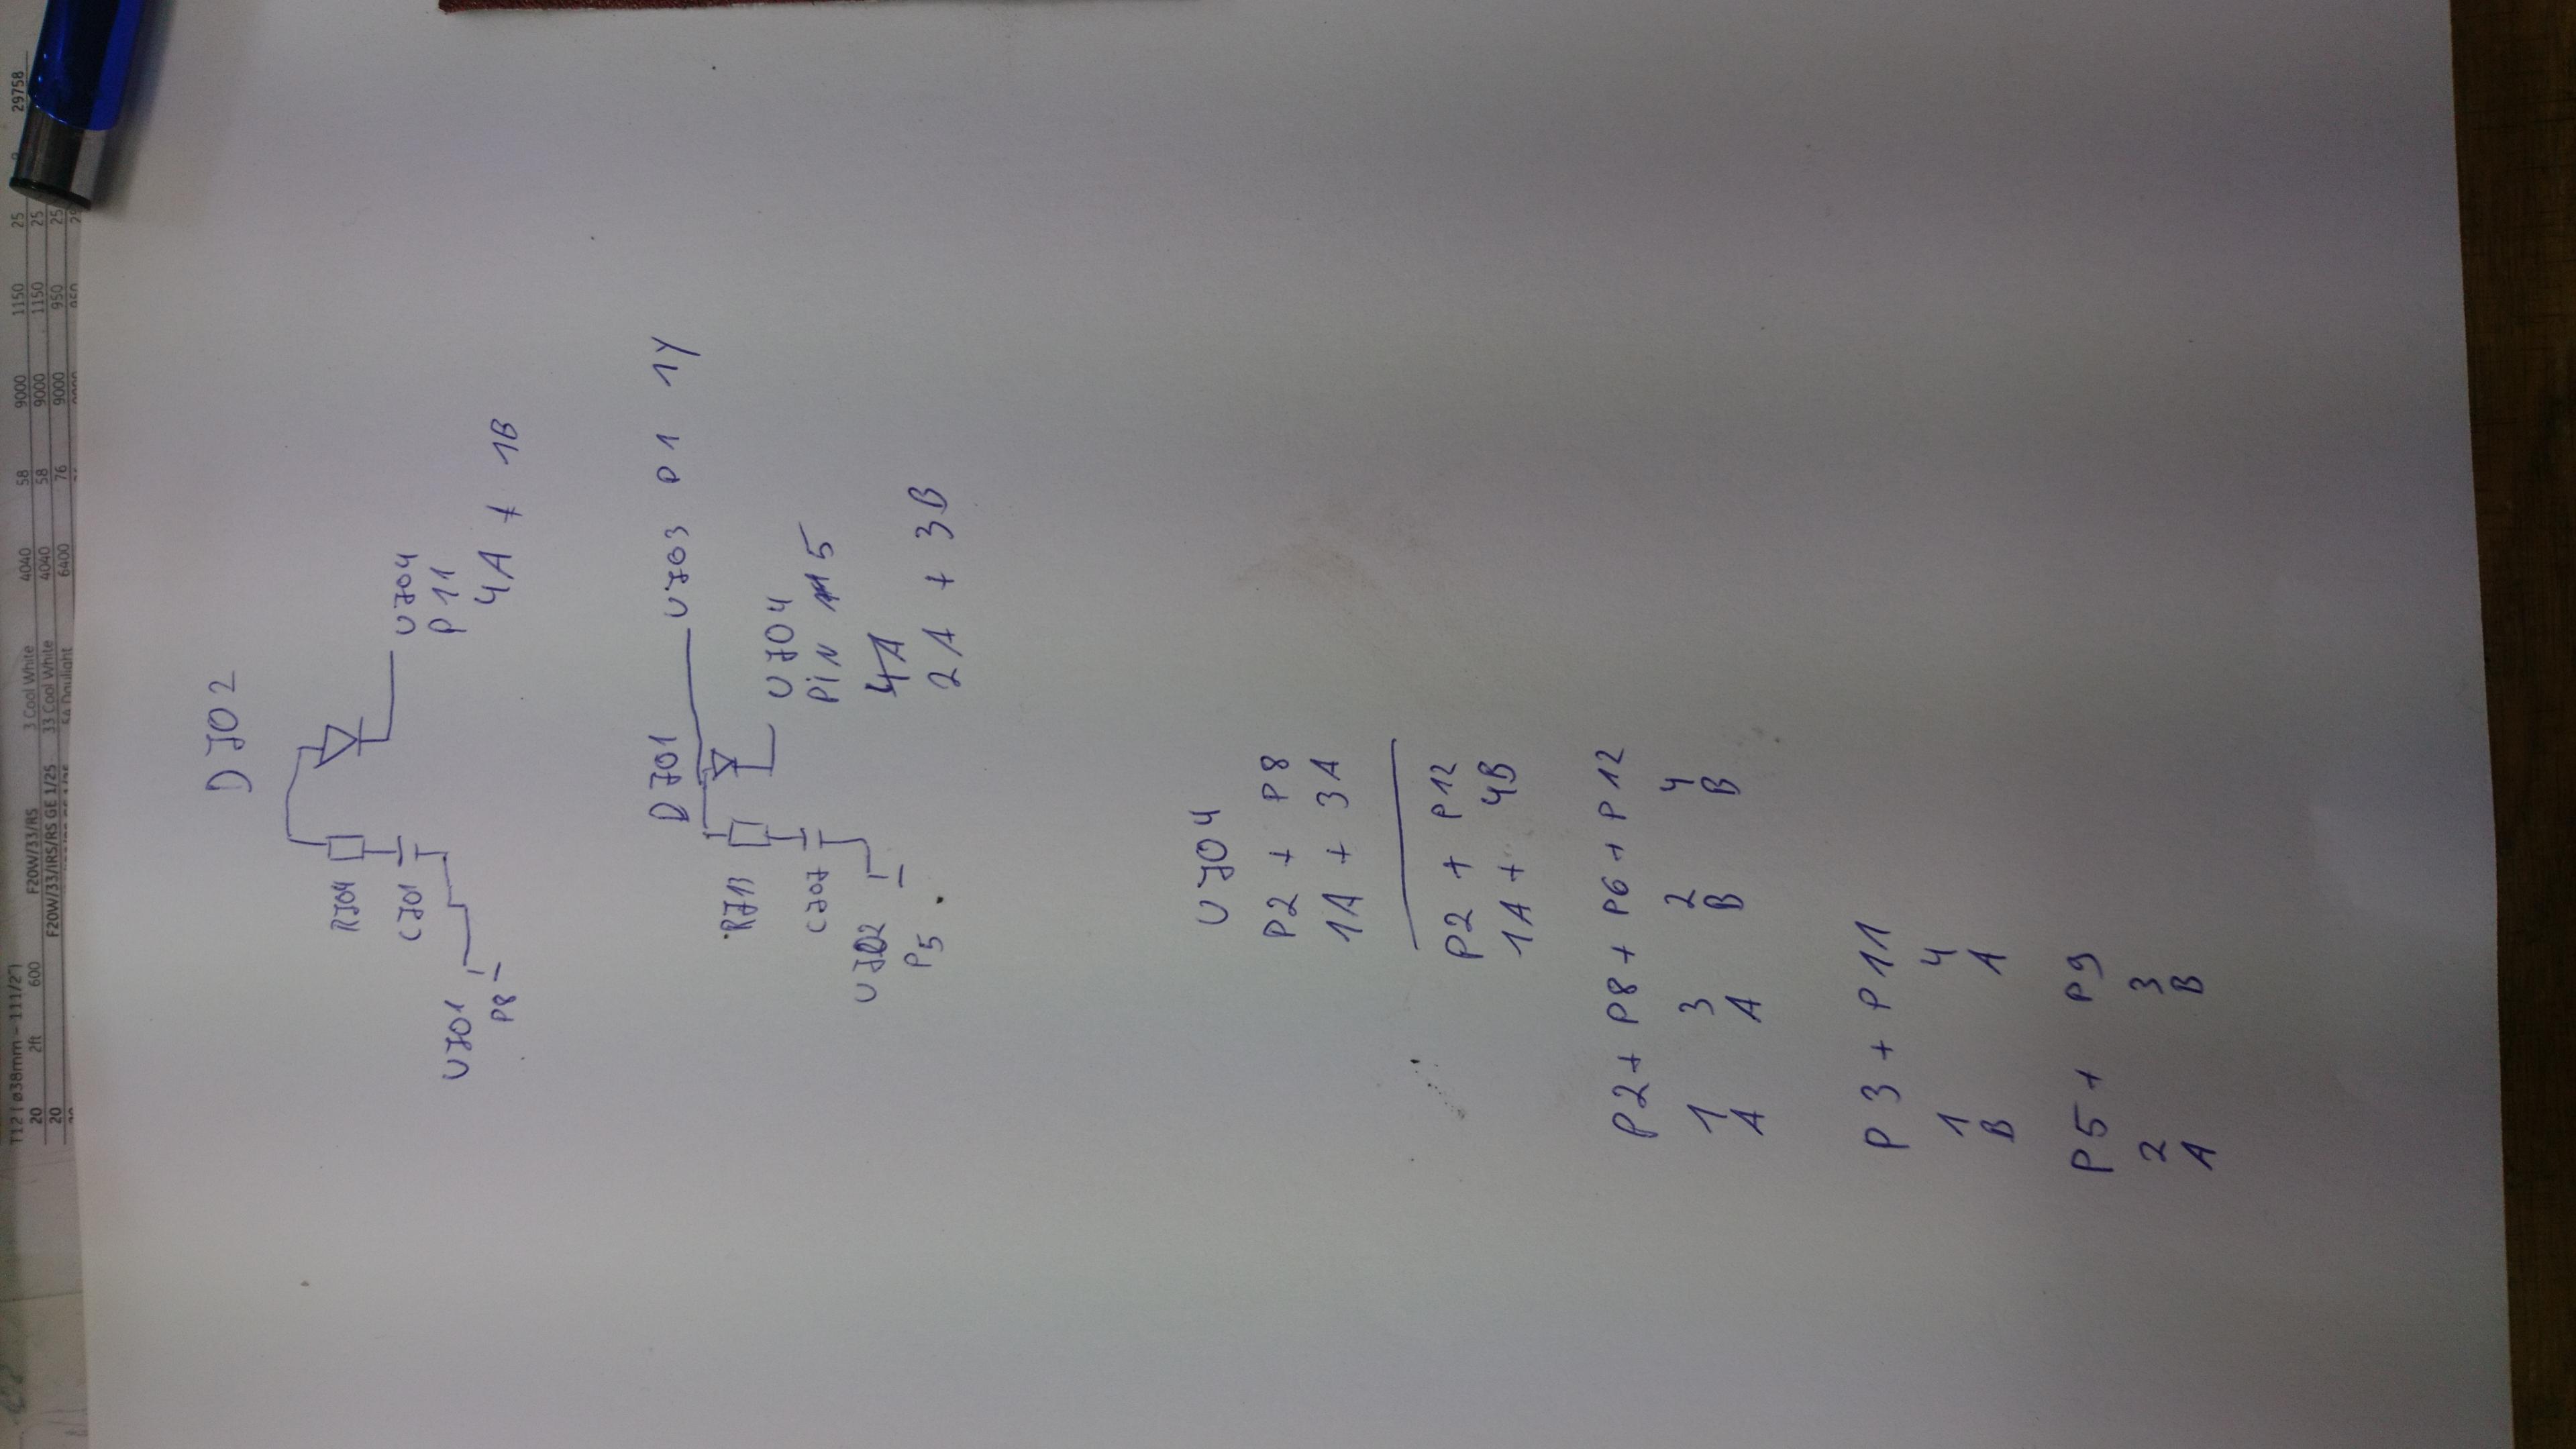 D702
R704
C701
U701
P8
U704
P11
4A + 1B
D701
U703 P1 1Y
R713
C707
U702
P5
U704
PiN 5
4A
2A + 3B
U704
P2 + P8
1A + 3A
P2 + P12
1A + 4B
P2 + P8 + P6 + P12
1 3 2 4
A A B B
P3 + P11
1 4
B A
P5 + P9
2 3
A B
T12 ( ø38mm – 1 1/2")
20 2ft 600 F20W/33/RS 3 Cool White 4040 58 9000 1150 25 29758
20 F20W/33/IRS/RS GE 1/25 33 Cool White 4040 58 9000 1150 25
6400 76 9000 950 25
54 Daylight